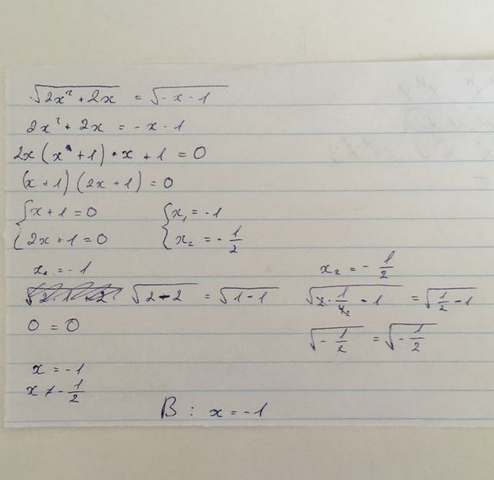 √(2x² + 2x) = √(-x - 1)
2x² + 2x = -x - 1
2x(x + 1) + x + 1 = 0
(x + 1)(2x + 1) = 0
{ x + 1 = 0 { x₁ = -1
{ 2x + 1 = 0 { x₂ = -1/2
x₁ = -1 x₂ = -1/2
√(2 - 2) = √(1 - 1) √(2 · 1/4 - 1) = √(1/2 - 1)
0 = 0 √(-1/2) = √(-1/2)
x = -1
x ≠ -1/2
B : x = -1